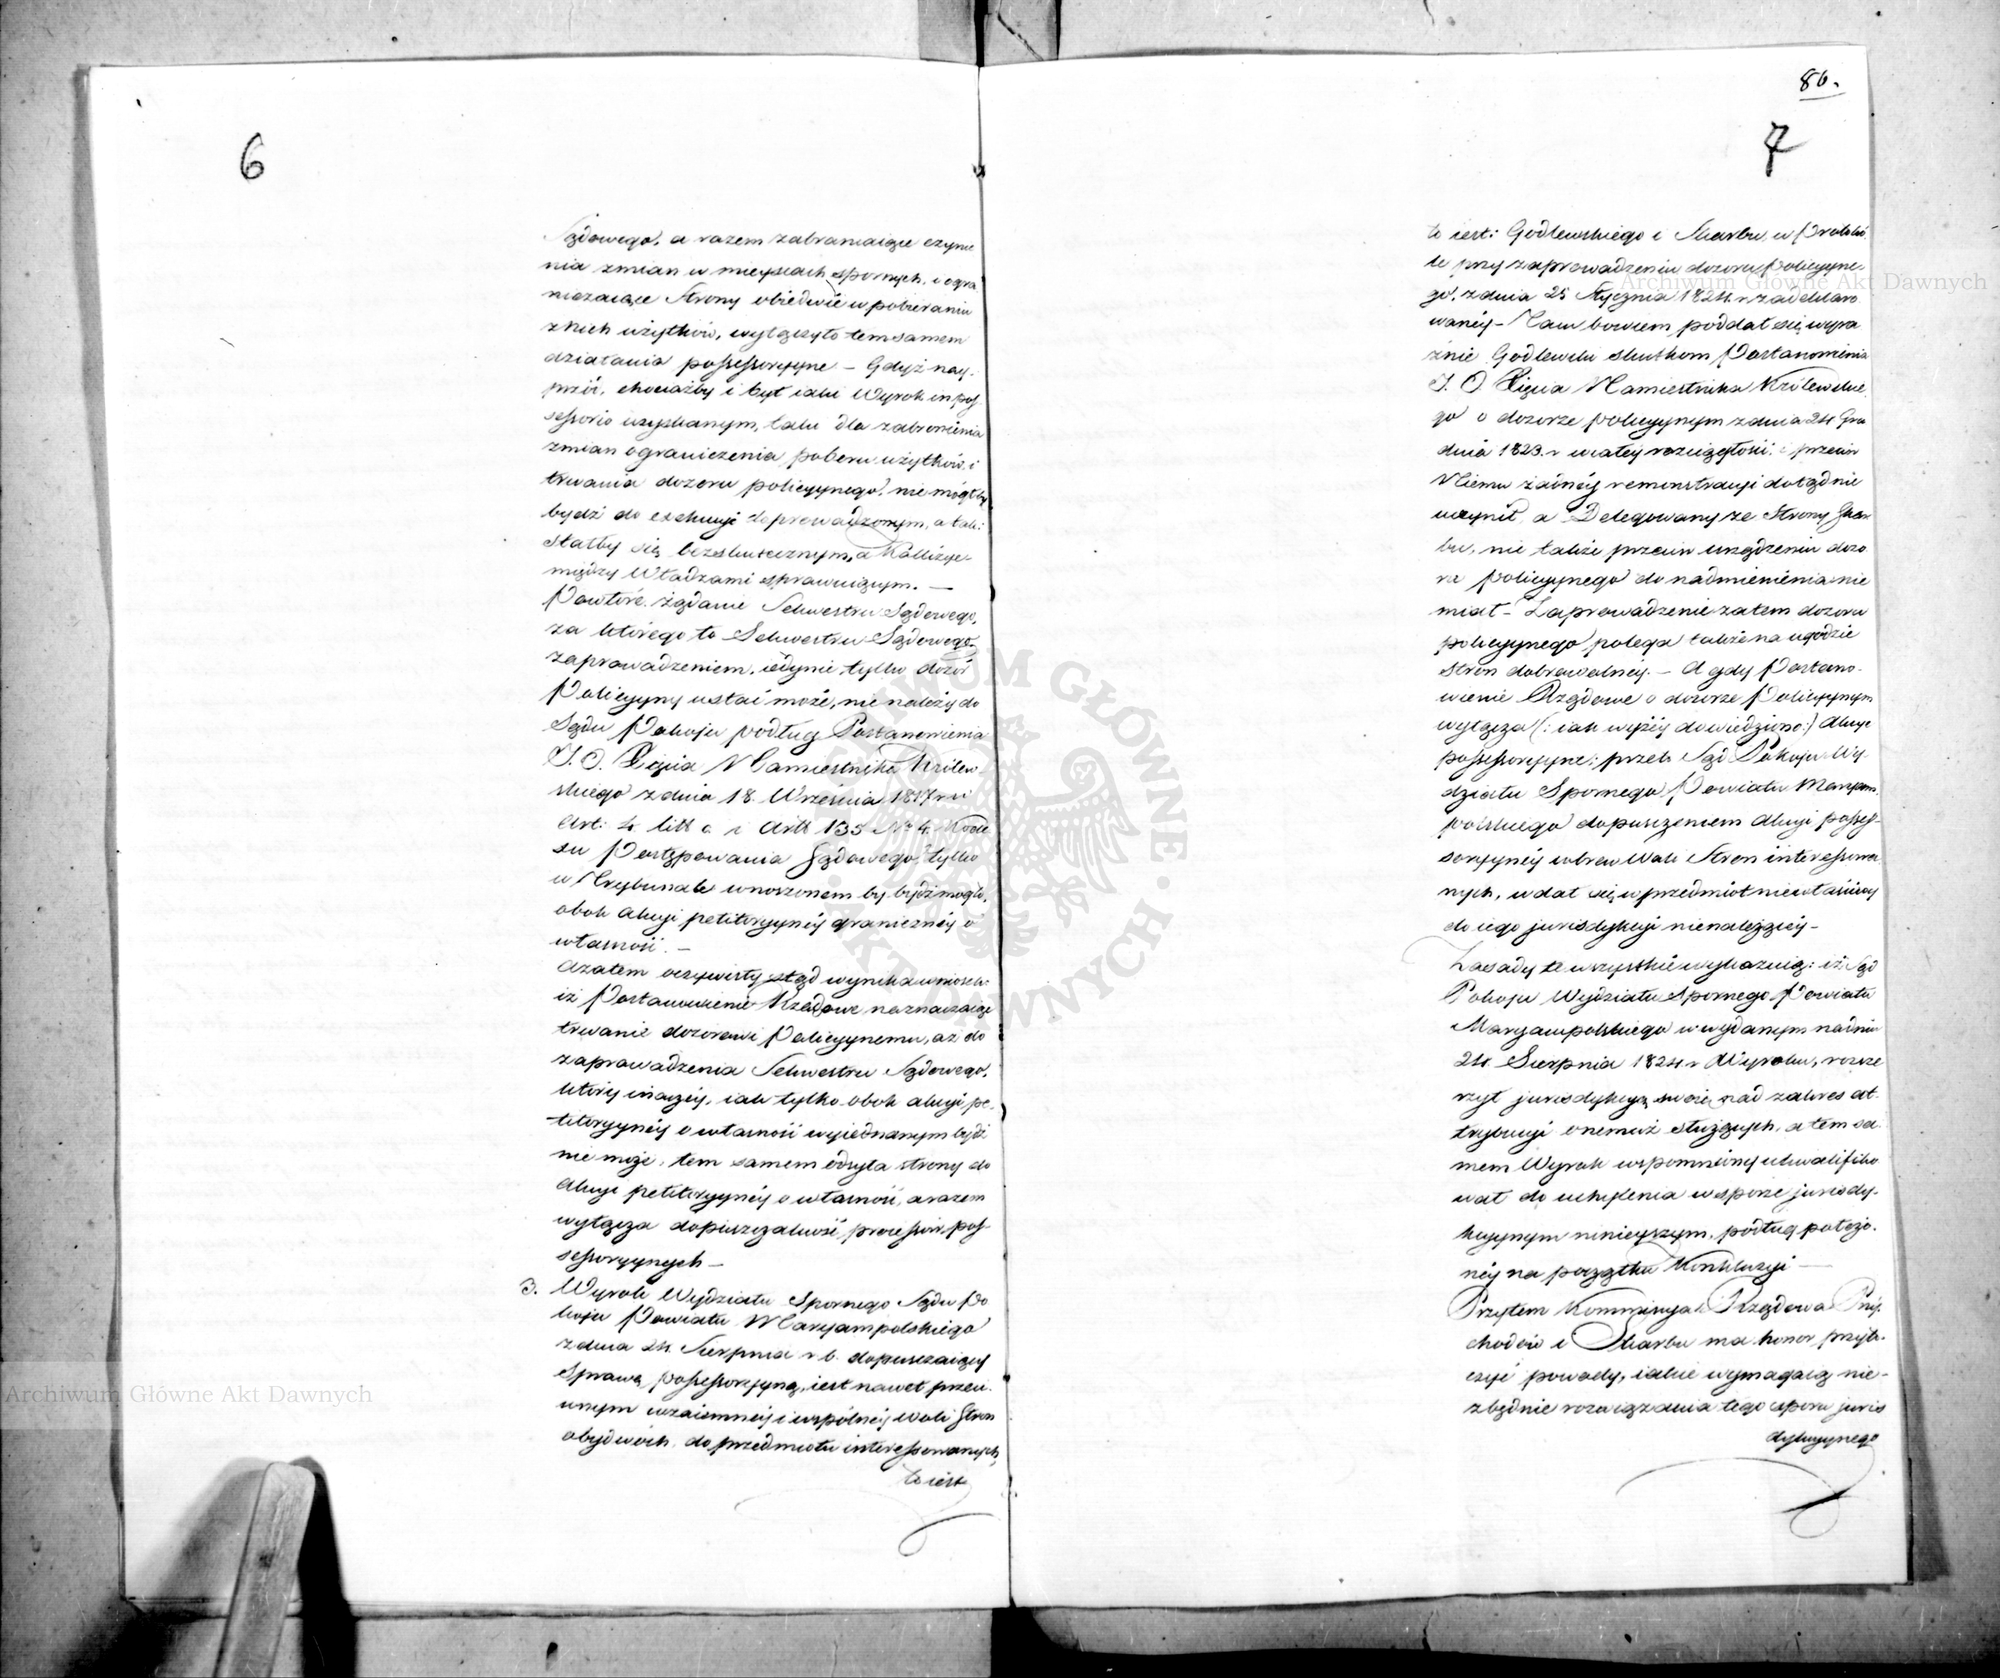 6
Sądowego, a razem zabraniaiące czynie
nia zmian w mieyscach spornych, i ogra
niczaiące Strony obiedwie w pobieraniu
z nich użytków, wyłączyło tem samem
działania possessoryyne – Gdyż nay-
przód, chociażby i był iaki Wyrok in pos
sessorio uzyskanym, taki dla zabronienia
zmian ograniczenia poboru użytków, i
trwania dozoru policyynego, nie mógłby
bydź do exekucyi doprowadzonym, a tak:
stałby się bezskutecznym, a Kollizye
między Władzami sprawuiącym. —
Powtóre. żądanie Sekwestru Sądowego,
za którego to Sekwestru Sądowego
zaprowadzeniem, iedynie tylko dozór
Policyyny ustać może, nie należy do
Sądu Pokoju podług Postanowienia
J. O. Xięcia Namiestnika Królew
skiego z dnia 18. Września 1817 r. i
Art: 4 litt a i Artt 135 No 4. Kode
xu Postępowania Sądowego, tylko
w Trybunale wnoszonem by bydź mogło,
obok akcyi petitoryynéy granicznéy o
własność. —
A zatem oczywisty ztąd wynika wniosek:
iż Postanowienie Rządowe naznaczaiące
trwanie dozorowi Policyynemu, aż do
zaprowadzenia Sekwestru Sądowego,
który inaczéy, iak tylko obok akcyi pe-
titoryynéy o własność wyiednanym bydź
nie może, tem samem odsyła strony do
Akcyi petitoryynéy o własność, a razem
wyłącza dopuszczalność processów pos-
sessoryynych —
3. Wyrok Wydziału Spornego Sądu Po
koju Powiatu Maryampolskiego
z dnia 24. Sierpnia r. b. dopuszczaiący
Sprawę possessoryyną, iest nawet przeci
wnym wzaiemnéy i wspólnéy Woli Stron
obydwóch, do przedmiotu interessowanych,
to iest
86.
7
to iest: Godlewskiego i Skarbu, w Protokó
le przy zaprowadzeniu dozoru policyyne-
go, z dnia 25 Stycznia 1824 r. zadeklaro
wanéy – Tam bowiem poddał się wyra
źnie Godlewski skutkom Postanowienia
J. O. Xięcia Namiestnika Królewskie
go o dozorze policyynym z dnia 24 Gru
dnia 1823. r w całey rozciągłości, i przeciw
Niemu żadnéy remonstracyi dotąd nie
uczynił, a Delegowany ze Strony Skar
bu, nie także przeciw urządzeniu dozo
ru policyynego do nadmienienia nie
miał – Zaprowadzenie zatem dozoru
policyynego polega także na ugodzie
Stron dobrowolnéy. – A gdy Postano-
wienie Rządowe o dozorze Policyynym
wyłącza (: iak wyżéy dowiedziono:) Akcye
possessoryyne; przeto Sąd Pokoju Wy-
działu Spornego Powiatu Maryam
polskiego dopuszczeniem Akcyi posses-
soryynéy wbrew Woli Stron interessowa
nych, wdał się w przedmiot niewłaściwy
do iego jurisdykcyi nienależącéy –
Zasady te wszystkie wykazuią: iż Sąd
Pokoju Wydziału Spornego Powiatu
Maryampolskiego w wydanym na dniu
24. Sierpnia 1824 r. Wyroku, rozsze
rzył jurisdykcyą swoię nad zakres at-
trybucyi onemuż służących, a tem sa-
mem Wyrok wspomniony ukwalifiko
wał do uchylenia w sporze jurisdy-
kcyynym ninieyszym, podług położo-
néy na początku Konkluzyi —
Przytem Kommissya Rządowa Przy-
chodów i Skarbu ma honor przyto-
czyć powody, iakie wymagaią nie-
zbędnie rozwiązania tego sporu juris
dykcyynego
Archiwum Główne Akt Dawnych
Archiwum Główne Akt Dawnych
ARCHIWUM GŁÓWNE AKT DAWNYCH